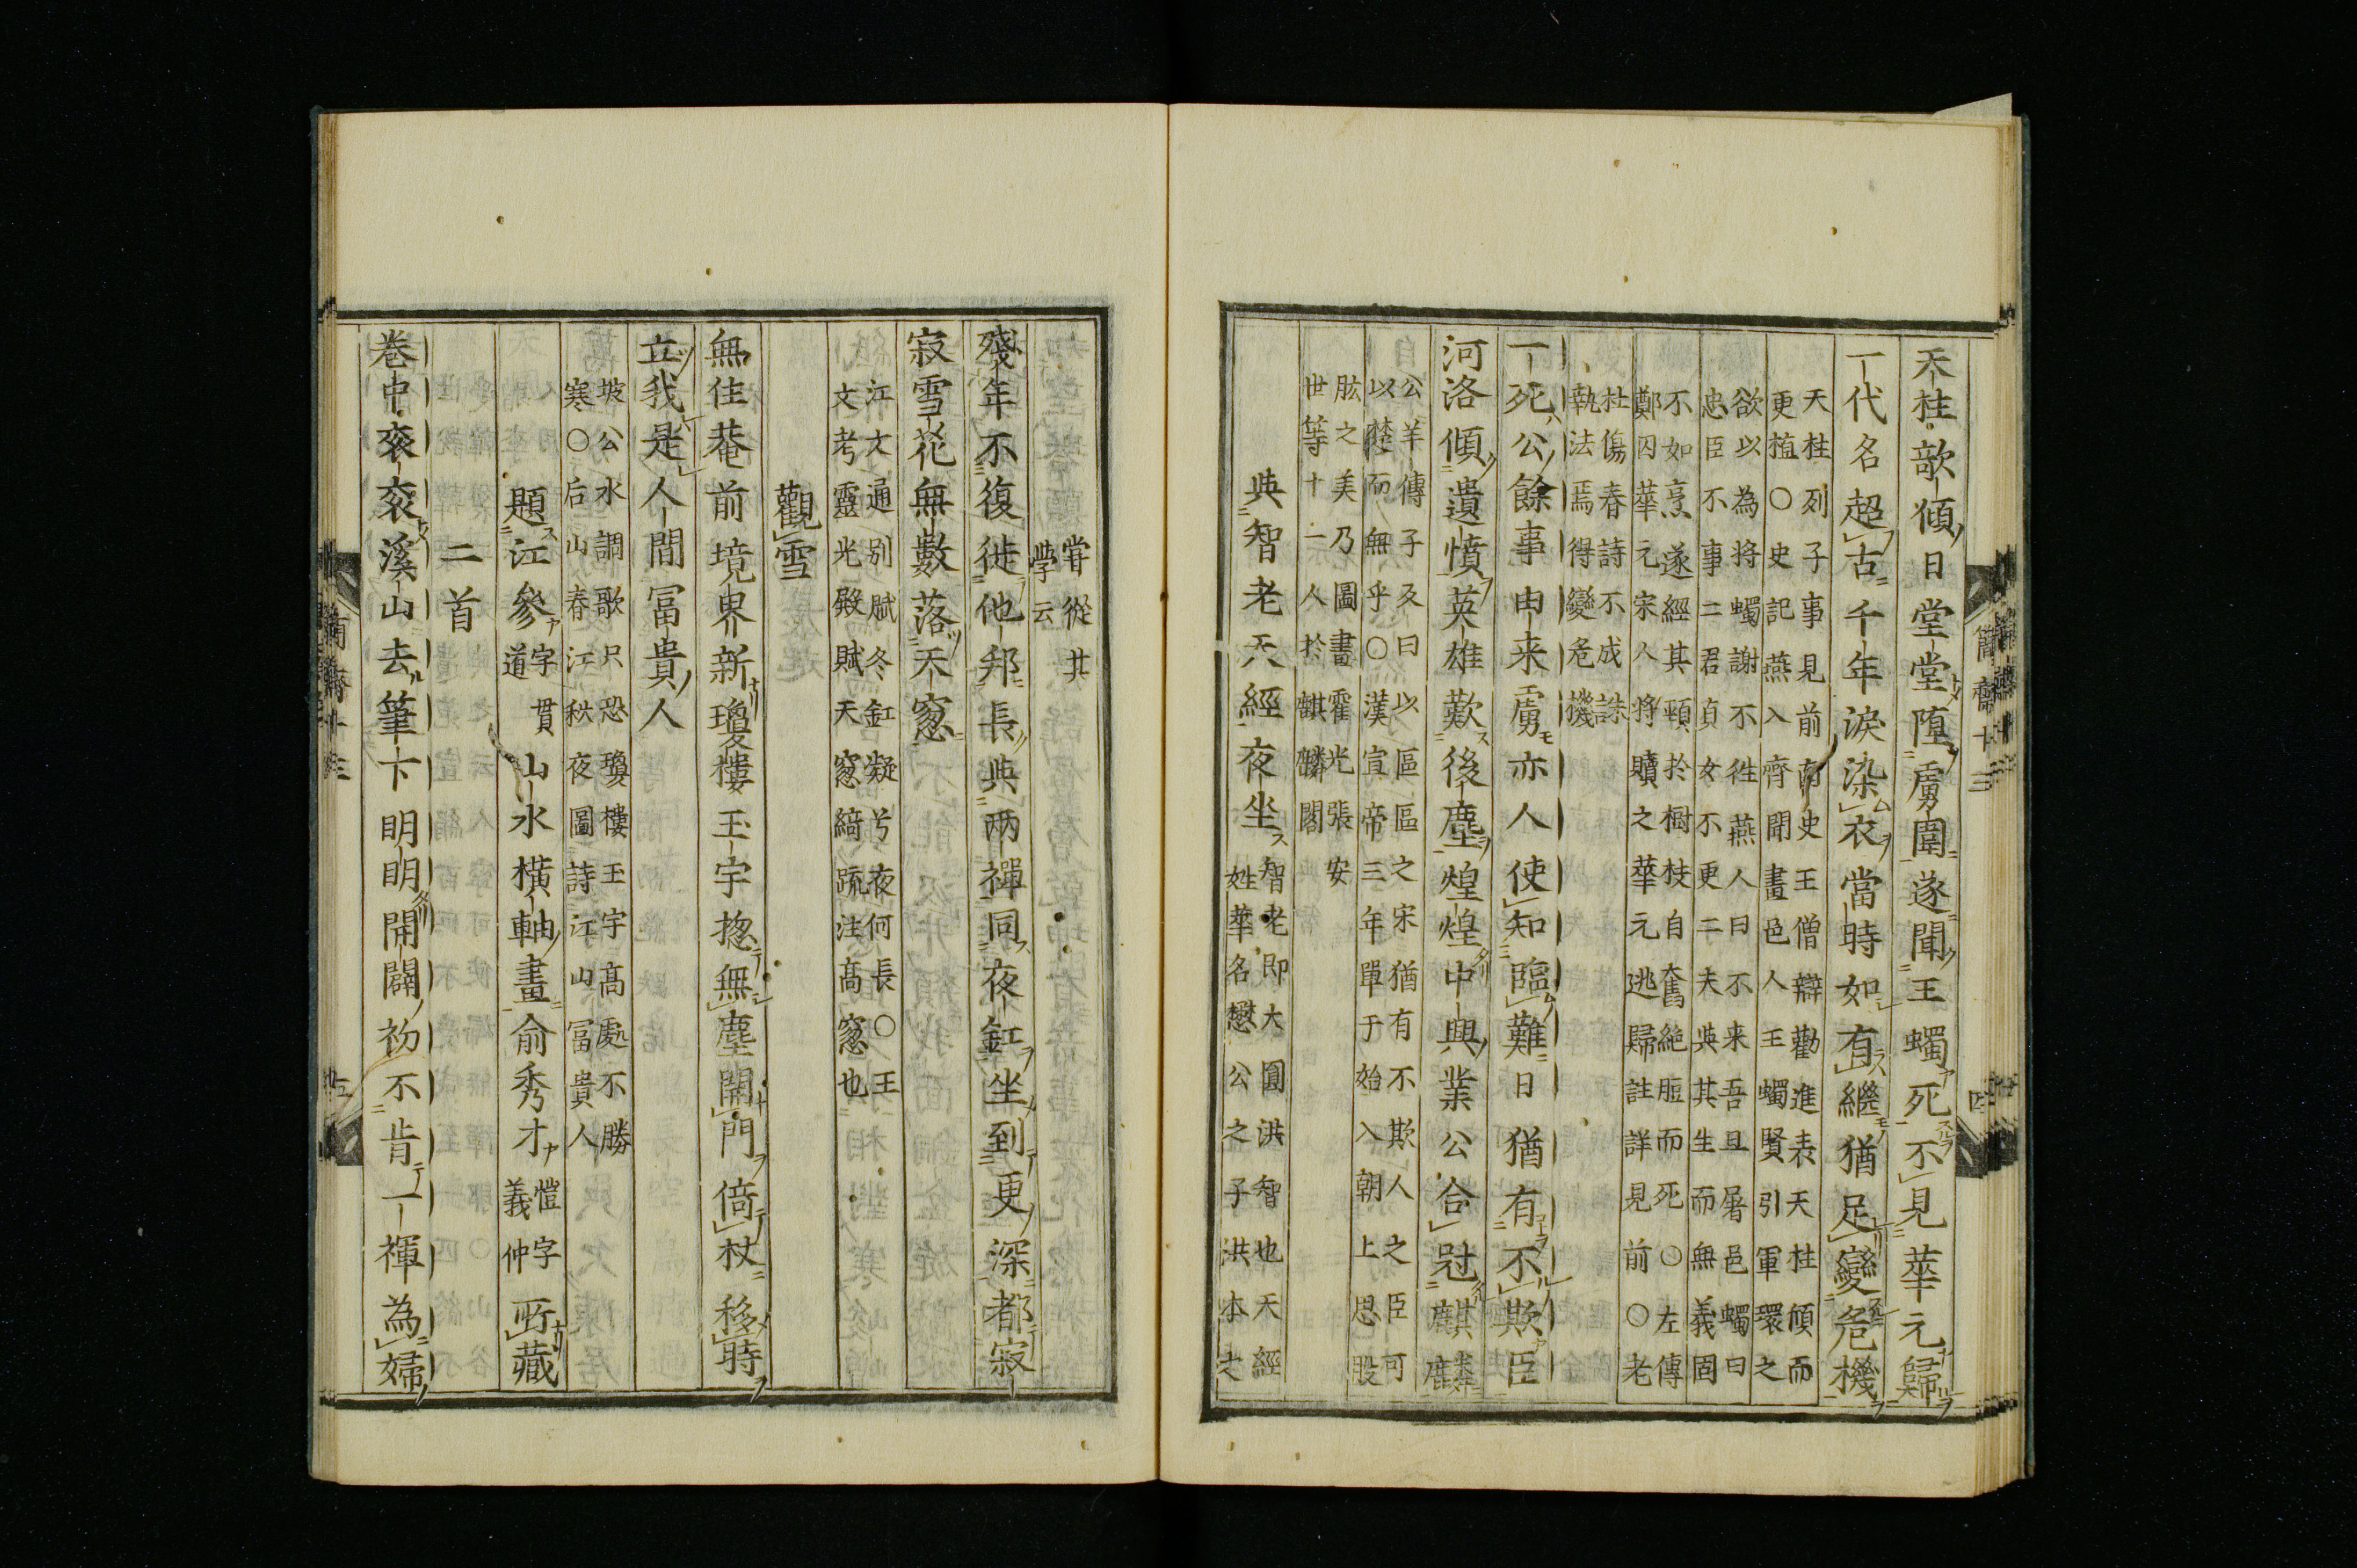 天柱欹傾日堂堂堕虜圍遂聞王蠋死不見華元歸
一代名超古千年淚染衣當時如有繼猶足變危機
天柱列子事見前南史王僧辯勸進表天柱傾而
更植○史記燕入齊聞畫邑人王蠋賢引軍環之
欲以為将蠋謝不徃燕人曰不来吾且屠邑蠋曰
忠臣不事二君貞女不更二夫與其生而無義固
不如烹遂經其頸於樹枝自奮絶脰而死○左傳
鄭囚華元宋人将贖之華元逃歸註詳見前○老
杜傷春詩不成誅
執法焉得變危機
一死公餘事由来虜亦人使知臨難日猶有不欺臣
河洛傾遺憤英雄歎後塵煌煌中興業公合冠麒麟
公羊傳子反曰以區區之宋猶有不欺人之臣可
以楚而無乎○漢宣帝三年單于始入朝上思股
肱之美乃圖畫霍光張安
世等十一人於麒麟閣
與智老天經夜坐
智老即大圓洪智也天經
姓葉名懋公之子洪本之
甞從其
學云
殘年不復徙他邦長與兩禪同夜釭坐到更深都寂
寂雪花無數落天窓
江文通別賦冬釭凝兮夜何長○王
文考靈光殿賦天窓綺疏注高窓也
觀雪
無住菴前境界新瓊樓玉宇揔無塵開門倚杖移時
立我是人間冨貴人
坡公水調歌只恐瓊樓玉宇高處不勝
寒○后山春江秋夜圖詩江山冨貴人
題江參字貫道山水橫軸畫俞秀才愷字義仲所藏
二首
卷中衮衮溪山去筆下明明開闢初不肯一褌為婦